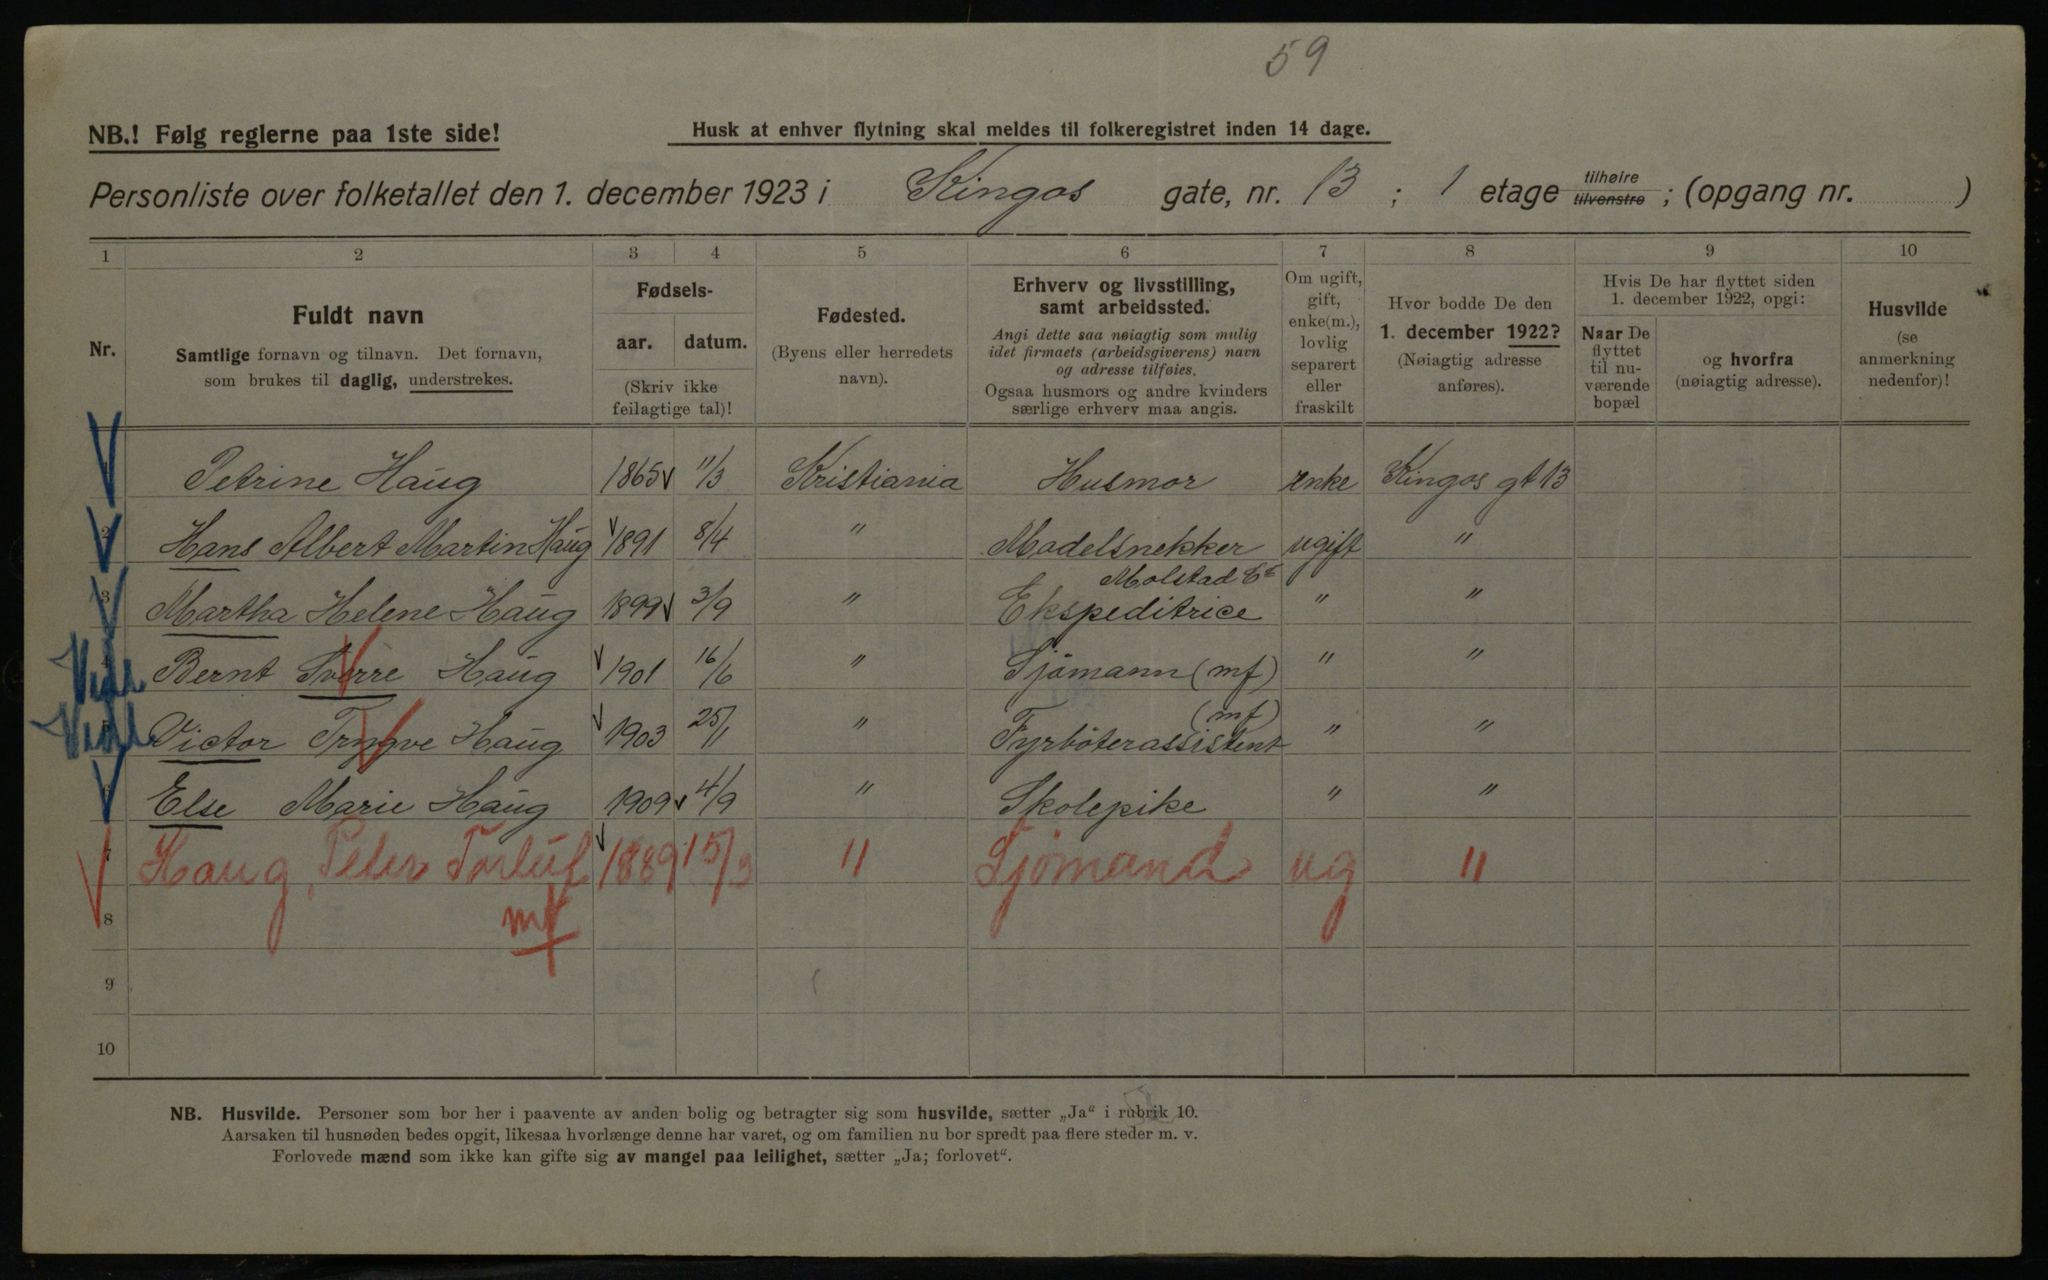 59
NB.! Følg reglerne paa 1ste side!
Husk at enhver flytning skal meldes til folkeregistret inden 14 dage.
Personliste over folketallet den 1. december 1923 i Kingos gate, nr. 13 ; 1 etage tilhøire tilvenstre ; (opgang nr. )
1 2 3 4 5 6 7 8 9 10
Nr.
Fuldt navn
Samtlige fornavn og tilnavn. Det fornavn,
som brukes til daglig, understrekes.
Fødsels-
aar. datum.
(Skriv ikke
feilagtige tal)!
Fødested.
(Byens eller herredets
navn).
Erhverv og livsstilling,
samt arbeidssted.
Angi dette saa nøiagtig som mulig
idet firmaets (arbeidsgiverens) navn
og adresse tilføies.
Ogsaa husmors og andre kvinders
særlige erhverv maa angis.
Om ugift,
gift,
enke(m.),
lovlig
separert
eller
fraskilt
Hvor bodde De den
1. december 1922?
(Nøiagtig adresse
anføres).
Hvis De har flyttet siden
1. december 1922, opgi:
Naar De
flyttet
til nu-
værende
bopæl
og hvorfra
(nøiagtig adresse).
Husvilde
(se
anmerkning
nedenfor)!
Petrine Haug 1865 11/3 Kristiania Husmor enke Kingos gt 13
2 Hans Albert Martin Haug 1891 8/4 " Modelsnekker ugift "
Molstad Co
3 Martha Helene Haug 1899 3/9 " Ekspeditrice " "
4 Bernt Sverre Haug 1901 16/6 " Sjömann (mf) " "
(mf)
5 Victor Trygve Haug 1903 25/1 " Fyrböterassistent " "
6 Else Marie Haug 1909 4/9 " Skolepike " "
7 Haug, Peter Torluf 1889 15/3 " Sjömand ug "
8 mf
9
10
NB. Husvilde. Personer som bor her i paavente av anden bolig og betragter sig som husvilde, sætter „Ja“ i rubrik 10.
Aarsaken til husnøden bedes opgit, likesaa hvorlænge denne har varet, og om familien nu bor spredt paa flere steder m. v.
Forlovede mænd som ikke kan gifte sig av mangel paa leilighet, sætter „Ja; forlovet“.